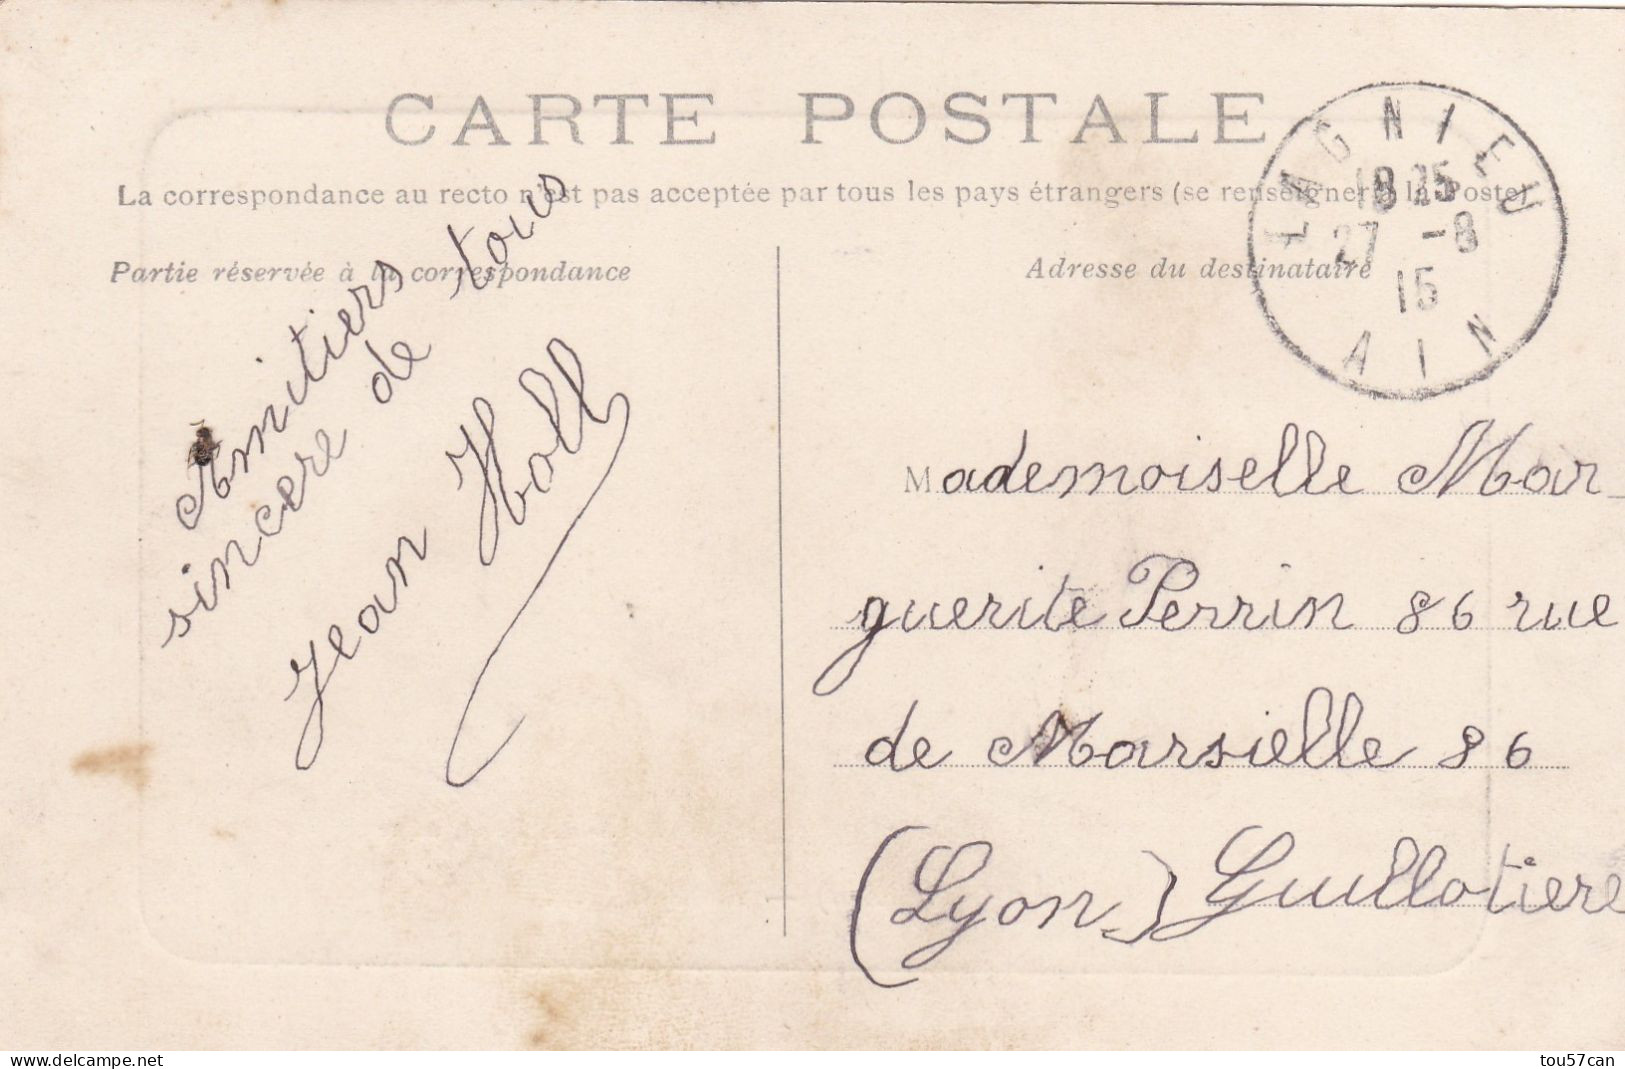 CARTE POSTALE
La correspondance au recto n'est pas acceptée par tous les pays étrangers (se renseigner à la Poste)
Partie réservée à la correspondance
Adresse du destinataire
LAGNIEU
18 25
27 -8
15
AIN
Amitiers
sincere de tous
Jean Holl
Mademoiselle Mar
guerite Perrin 86 rue
de Marsielle 86
(Lyon) Guillotiere
delcampe.net
tou57can